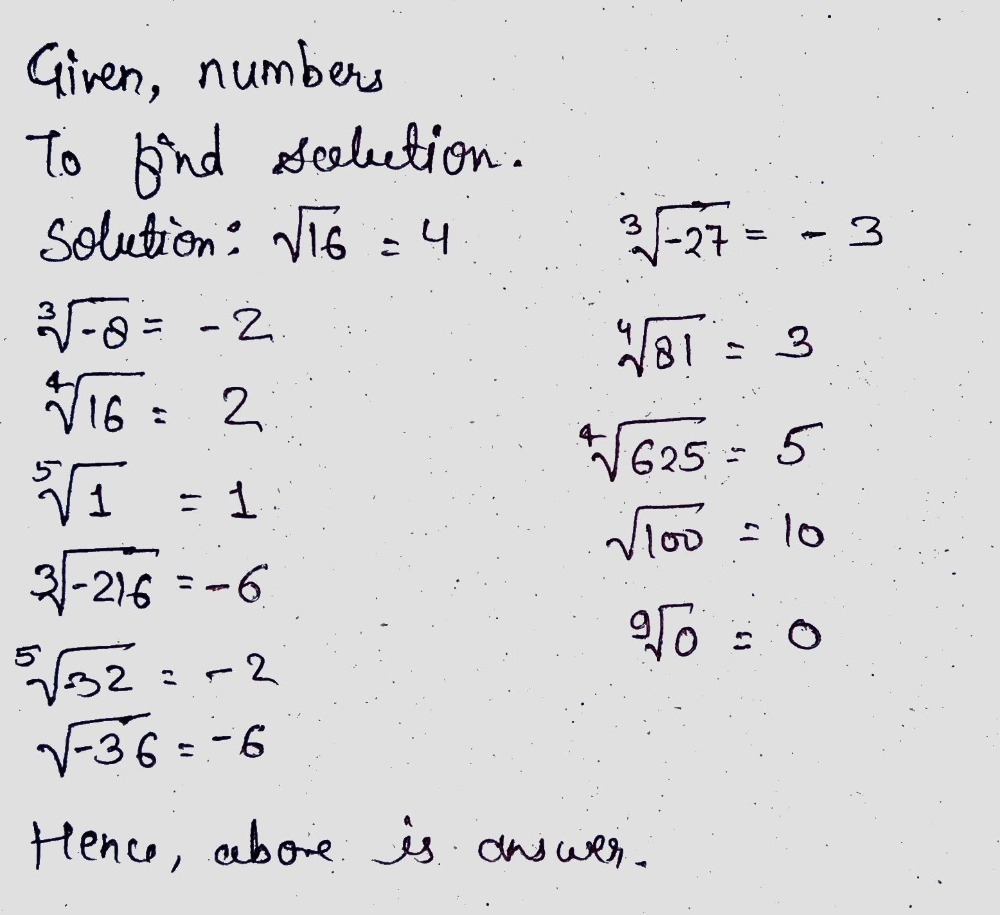 Given, numbers
To find solution.
Solution: √16 = 4
∛-8 = -2
∜16 = 2
⁵√1 = 1
∛-216 = -6
⁵√-32 = -2
√-36 = -6
∛-27 = - 3
∜81 = 3
∜625 = 5
√100 = 10
⁹√0 = 0
Hence, above is answer.